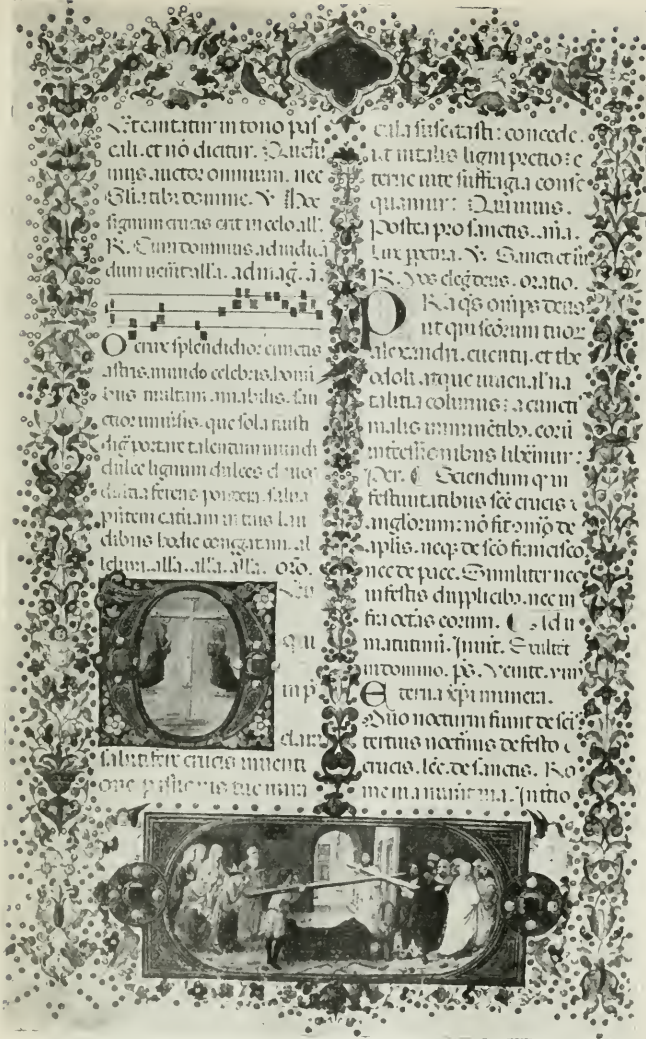 et cantatur in tono pas
cali. et nō dicitur.
auctor omnium. nec
Gl̄ia tibi domine. V. Hoc
signum crucis erit in celo all'a.
R. Cum dominus ad iudicā
dum uen̄it all'a. ad mag. ā.
O crux splendidior cunctis
astris. mundo celebris. homi
bus multum amabilis. san
ctior uniūsis. que sola fuisti
dig portare talentum mundi
dulce lignum dulces clauos
dulcia ferens pondera. salua
pn̄tem cat̄uam in tuis lau
dibus hodie conḡgatam. al
leluia. all'a. all'a. all'a. oro.
qui
in p
clara
salutifere crucis inuenti
one passionis tue mira
cula suscitasti: concede.
ut uitalis ligni pretio: e
terne uite suffragia conse
quamur: Qui uiuis.
Postea pro sanctis. ān̄a.
lux pp̄etua. V. Sancti et iu
R. Vos elegit deus. oratio.
PR̄a q̄s om̄ps deus
ut qui sc̄orum tuor
alexandri. euentii. et the
odoli. atque iuuenal' na
talitia colimus: a cuncti
malis iminētib. eorū
intercessionibus liberemur:
Per. Sciendum q in
festiuitatibus sc̄e crucis
anglorum: nō fit om̄o de
ap̄lis. neq; de sc̄o francisco
nec de pace. Similiter nec
in festis duplicib. nec in
fra octas eorum. Ad
matutinū. Inuit. Exultēt
in domino. ps. Venite. ym
Eterna xp̄i munera.
Duo nocturni fiunt de scī
tertius nocturnus de festo
crucis. lec̄. de sanctis. Ro
me